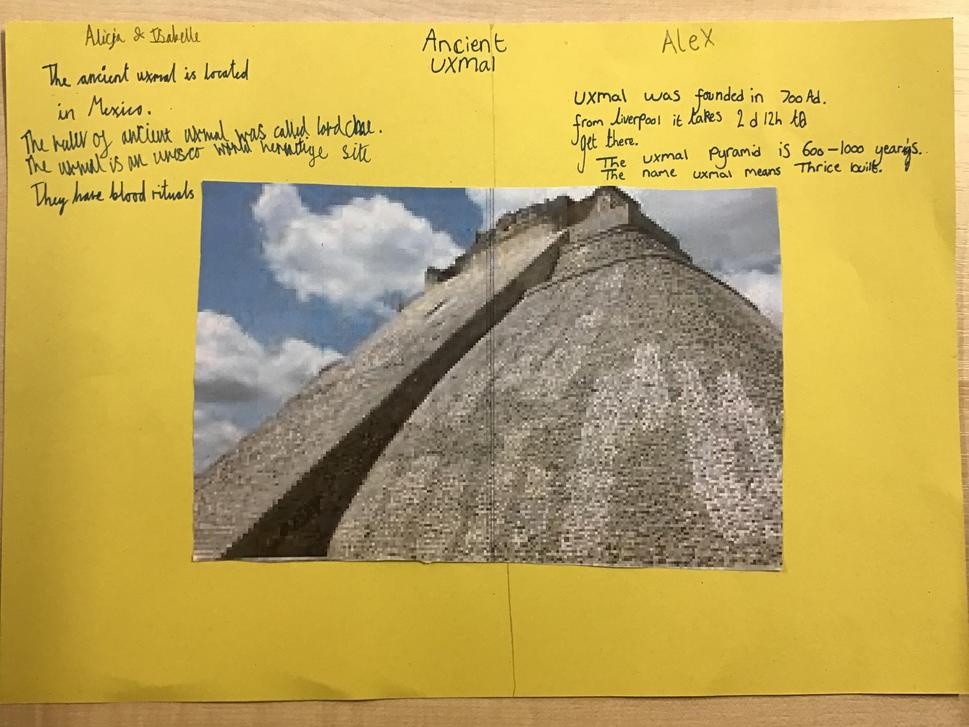 Alicja & Isabelle
Ancient
uxmal
Alex
The ancient uxmal is located
in Mexico.
The ruler of ancient uxmal was called lord chac.
The uxmal is an unesco world heritige site
They have blood rituals
uxmal was founded in 700 Ad.
from liverpool it takes 2 d 12h to
get there.
The uxmal pyramid is 600-1000 years.
The name uxmal means Thrice built.